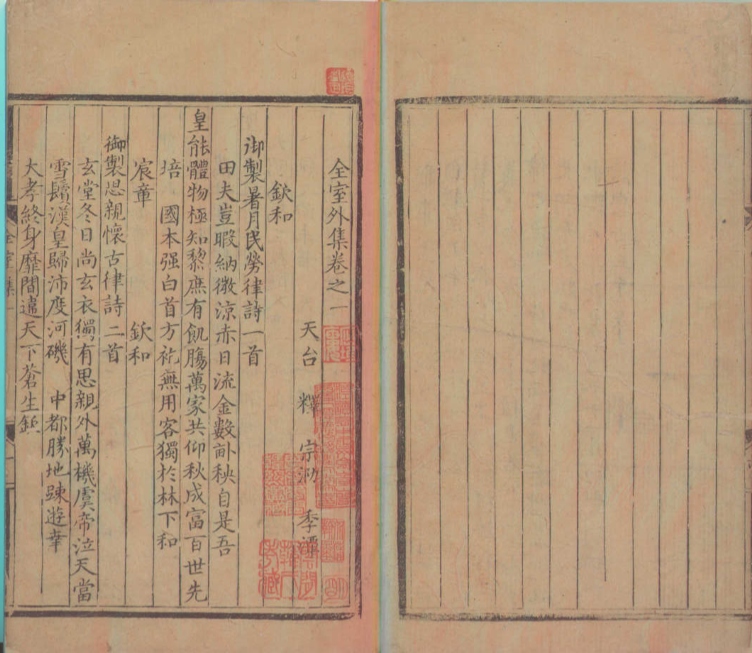 全室外集卷之一
天台 釋 宗泐 季潭
欽和
御製暑月民勞律詩一首
田夫豈暇納微涼赤日流金數畝秧自是吾
皇能體物極知黎庶有飢腸萬家共仰秋成富百世先
培 國本强白首方袍無用客獨於林下和
宸章 欽和
御製思親懷古律詩二首
玄堂冬日尚玄衣獨有思親外萬機虞帝泣天當
雪鬚漢皇歸沛度河磯 中都勝地踈遊幸
大孝終身靡間違天下蒼生
全室集一